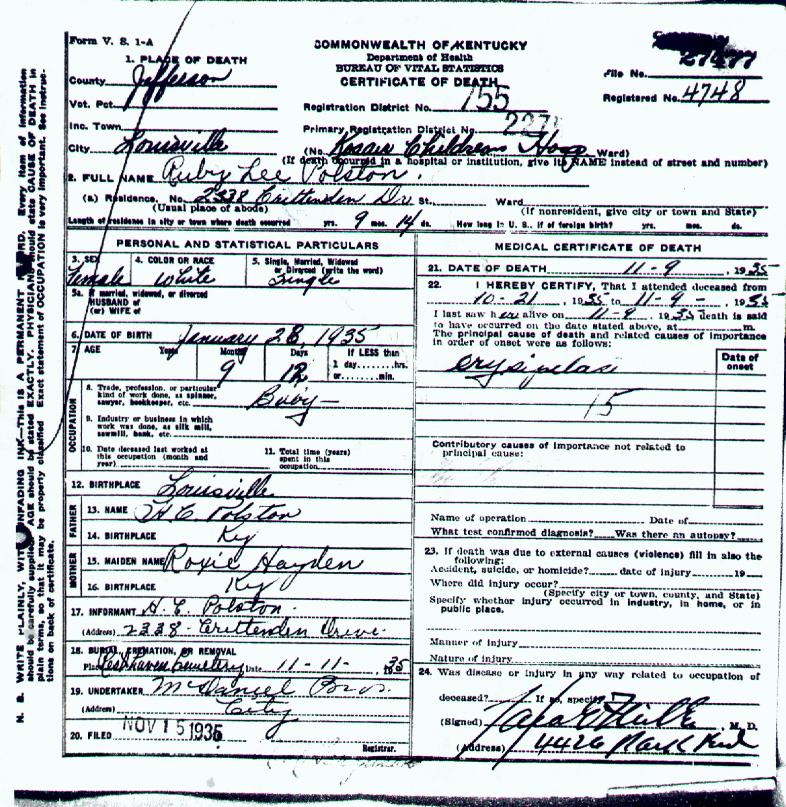 Form V. S. 1-A
COMMONWEALTH OF KENTUCKY
Department of Health
BUREAU OF VITAL STATISTICS
CERTIFICATE OF DEATH
File No.
Registered No. 4748
1. PLACE OF DEATH
County Jefferson
Vot. Pct.
Inc. Town
City Louisville
Registration District No. 755
Primary Registration District No.
(No. Kosair Childrens Hosp Ward)
(If death occurred in a hospital or institution, give its NAME instead of street and number)
2. FULL NAME Ruby Lee Polston.
(a) Residence. No. 2338 Crittenden Dr St., Ward
(Usual place of abode)
(If nonresident, give city or town and State)
Length of residence in city or town where death occurred yrs. 9 mos. 14 ds. How long in U. S., if of foreign birth? yrs. mos. ds.
PERSONAL AND STATISTICAL PARTICULARS
3. SEX Female
4. COLOR OR RACE White
5. Single, Married, Widowed or Divorced (write the word) Single
5a. If married, widowed, or divorced
HUSBAND of
(or) WIFE of
6. DATE OF BIRTH January 28, 1935
7. AGE Years Months 9 Days 12 If LESS than
1 day........hrs.
or........min.
OCCUPATION
8. Trade, profession, or particular
kind of work done, as spinner,
sawyer, bookkeeper, etc. Baby
9. Industry or business in which
work was done, as silk mill,
sawmill, bank, etc.
10. Date deceased last worked at
this occupation (month and
year)
11. Total time (years)
spent in this
occupation
12. BIRTHPLACE Louisville
FATHER
13. NAME H. C. Polston
14. BIRTHPLACE Ky
MOTHER
15. MAIDEN NAME Roxie Hayden
16. BIRTHPLACE Ky
17. INFORMANT H. C. Polston
(Address) 2338 Crittenden Drive
18. BURIAL, CREMATION, OR REMOVAL
Place Resthaven Cemetery Date 11-11-, 1935
19. UNDERTAKER McDaniel Bros.
(Address) City
20. FILED NOV 15 1935
Registrar.
MEDICAL CERTIFICATE OF DEATH
21. DATE OF DEATH 11-9, 1935
22. I HEREBY CERTIFY, That I attended deceased from
10-21, 1935 to 11-9-, 1935
I last saw her alive on 11-9, 1935 death is said
to have occurred on the date stated above, at m.
The principal cause of death and related causes of importance
in order of onset were as follows:
Date of onset
erysipelas
15
Contributory causes of importance not related to
principal cause:
Name of operation Date of
What test confirmed diagnosis? Was there an autopsy?
23. If death was due to external causes (violences) fill in also the
following:
Accident, suicide, or homicide? date of injury 19
Where did injury occur?
(Specify city or town, county, and State)
Specify whether injury occurred in industry, in home, or in
public place.
Manner of injury
Nature of injury
24. Was disease or injury in any way related to occupation of
deceased? If so, specify
(Signed) M. D.
(Address)
N. B. WRITE PLAINLY, WITH UNFADING INK—This is A PERMANENT RECORD. Every item of information
should be carefully supplied. AGE should be stated EXACTLY. PHYSICIANS should state CAUSE OF DEATH in
plain terms, so that it may be properly classified. Exact statement of OCCUPATION is very important. See instruc-
tions on back of certificate.